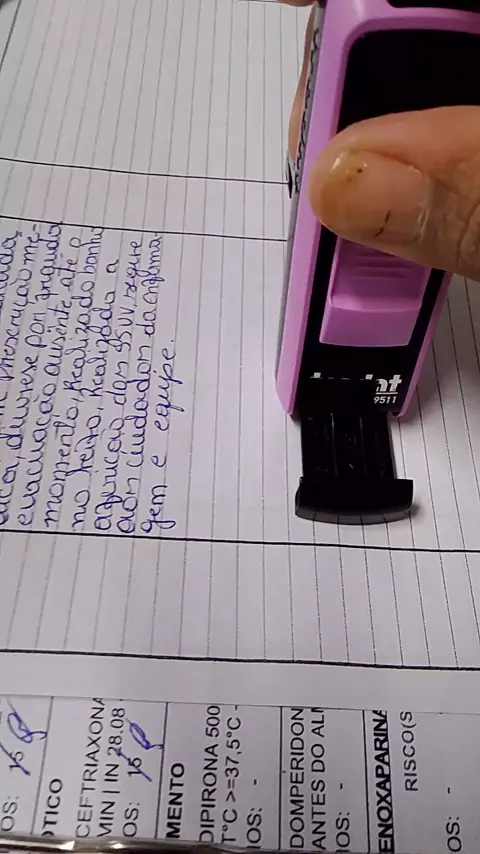 prescrição me-
evacuação ausente até o
momento, Realizado banho
no leito, Realizado a
aferição dos SSVV, segue
aos cuidados da enferma-
gem e equipe.
nt
9511
OS: 16
OTICO
CEFTRIAXONA
MIN | IN 28.08
OS: 16
MENTO
DIPIRONA 500
T°C >=37,5°C -
IOS: -
DOMPERIDON
ANTES DO ALM
IOS: -
ENOXAPARINA
RISCO(S
OS: -